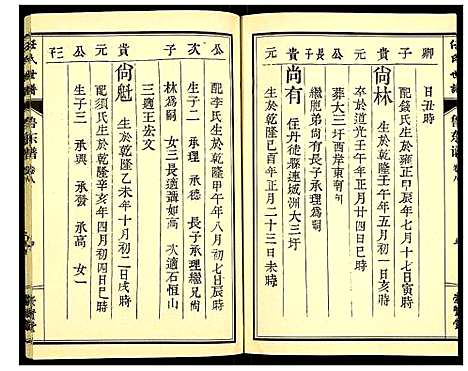 任氏世譜
卿
日丑時
貴
尙林
生於乾隆壬午年五月初一日亥時
元
配錢氏生於雍正庚午年七月十七日寅時
公
卒於道光壬午年正月廿四日巳時
長
葬大三圩西岸東向
子
繼胞弟尚有長子承理爲嗣
貴
尚有
住丹徒縣連城洲大三圩
元
生於乾隆己酉年正月二十三日未時
公
配李氏生於乾隆甲午年八月初七日戌時
次
生子二 承理 承德 長子承理繼兄尚
子
林爲嗣 女三長適蕭如高 次適石恒山
三適王宏文
貴
尙魁
生於乾隆乙未年十月初二日戌時
元
配須氏生於乾隆辛亥年四月初四日巳時
公
生子三 承興 承發 承高 女一
三
任氏世譜